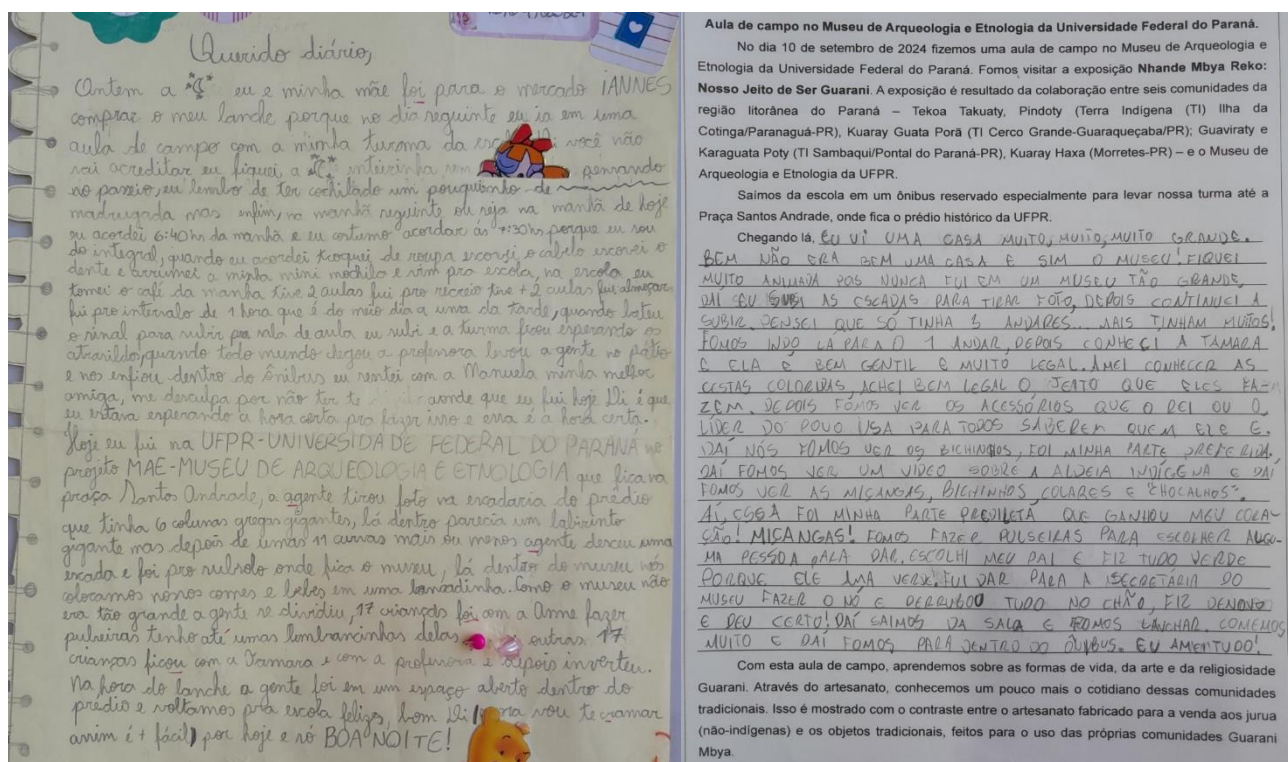 Querido diário,
Ontem a eu e minha mãe foi para o mercado IANNES
comprar o meu lanche porque no dia seguinte eu ia em uma
aula de campo com a minha turma da você não
vai acreditar eu fiquei a inteirinha sem pensando
no passeio, eu lembro de ter cochilado um pouquinho de
madrugada mas enfim, na manhã seguinte ou seja na manhã de hoje
eu acordei 6:40hs da manhã e eu costumo acordar ás 7:30hs porque eu sou
do integral, quando eu acordei troquei de roupa escovei o cabelo escovei o
dente e arrumei a minha mini mochila e vim pra escola, na escola eu
tomei o café da manha tive 2 aulas fui pro recreio tive + 2 aulas fui almoçar
fui pro intervalo de 1 hora que é do meio dia a uma da tarde, quando bateu
o sinal para subir pra sala de aula eu subi e a turma ficou esperando os
quando todo mundo chegou a professora levou a gente no pátio
e nos enfiou dentro do ônibus eu sentei com a Manuela minha melhor
amiga, me desculpa por não ter te aonde que eu fui hoje Di é que
eu estava esperando a hora certa pra fazer isso e essa é a hora certa.
Hoje eu fui na UFPR-UNIVERSIDADE FEDERAL DO PARANÁ no
projito MAE-MUSEU DE ARQUEOLOGIA E ETNOLOGIA que fica na
praça Santos Andrade, a agente tirou foto na escadaria do prédio
que tinha 6 colunas gregas gigantes, lá dentro parecia um labirinto
gigante mas depois de umas 11 curvas mais ou menos agente desceu uma
escada e foi pro subsolo onde fica o museu, lá dentro do museu nós
colocamos nossos comes e bebes em uma bancadinha. Como o museu não
era tão grande a gente se dividiu, 17 crianças foi com a Anne fazer
pulseiras tenho até umas lembrancinhas delas outras 17
crianças ficou com a Tamara e com a professora e depois inverteu.
Na hora do lanche a gente foi em um espaço aberto dentro do
prédio e voltamos pra escola felizes, bom Di vou te chamar
assim é + fácil) por hoje e só BOA NOITE!
Aula de campo no Museu de Arqueologia e Etnologia da Universidade Federal do Paraná.
No dia 10 de setembro de 2024 fizemos uma aula de campo no Museu de Arqueologia e
Etnologia da Universidade Federal do Paraná. Fomos visitar a exposição Nhande Mbya Reko:
Nosso Jeito de Ser Guarani. A exposição é resultado da colaboração entre seis comunidades da
região litorânea do Paraná – Tekoa Takuaty, Pindoty (Terra Indígena (TI) Ilha da
Cotinga/Paranaguá-PR), Kuaray Guata Porã (TI Cerco Grande-Guaraqueçaba/PR); Guaviraty e
Karaguata Poty (TI Sambaqui/Pontal do Paraná-PR), Kuaray Haxa (Morretes-PR) – e o Museu de
Arqueologia e Etnologia da UFPR.
Saímos da escola em um ônibus reservado especialmente para levar nossa turma até a
Praça Santos Andrade, onde fica o prédio histórico da UFPR.
Chegando lá, EU VI UMA CASA MUITO, MUITO, MUITO GRANDE.
BEM NÃO ERA BEM UMA CASA E SIM O MUSEU! FIQUEI
MUITO ANIMADA POIS NUNCA FUI EM UM MUSEU TÃO GRANDE,
DAÍ EU SUBI AS ESCADAS PARA TIRAR FOTO, DEPOIS CONTINUEI A
SUBIR. PENSEI QUE SÓ TINHA 3 ANDARES... MAIS TINHAM MUITOS!
FOMOS INDO LA PARA O 1 ANDAR, DEPOIS CONHECI A TAMARA
E ELA É BEM GENTIL E MUITO LEGAL. AMEI CONHECER AS
CESTAS COLORIDAS, ACHEI BEM LEGAL O JEITO QUE ELES FA-
ZEM. DEPOIS FOMOS VER OS ACESSÓRIOS QUE O REI OU O
LIDER DO POVO USA PARA TODOS SABEREM QUEM ELE É.
DAÍ NÓS FOMOS VER OS BICHINHOS, FOI MINHA PARTE PREFERIDA.
DAÍ FOMOS VER UM VÍDEO SOBRE A ALDEIA INDÍGENA E DAÍ
FOMOS VER AS MIÇANGAS, BICHINHOS, COLARES E "CHOCALHOS".
AÍ, ESSA FOI MINHA PARTE PREDILETA QUE GANHOU MEU CORA-
ÇÃO! MIÇANGAS! FOMOS FAZER PULSEIRAS PARA ESCOLHER ALGU-
MA PESSOA PARA DAR. ESCOLHI MEU PAI E FIZ TUDO VERDE
PORQUE ELE AMA VERDE. FUI DAR PARA A SECRETÁRIA DO
MUSEU FAZER O NÓ E DERRUBOU TUDO NO CHÃO, FIZ DENOVO
E DEU CERTO! DAÍ SAIMOS DA SALA E FOMOS LANCHAR. COMEMOS
MUITO E DAÍ FOMOS PARA DENTRO DO ÔNIBUS. EU AMEI TUDO!
Com esta aula de campo, aprendemos sobre as formas de vida, da arte e da religiosidade
Guarani. Através do artesanato, conhecemos um pouco mais o cotidiano dessas comunidades
tradicionais. Isso é mostrado com o contraste entre o artesanato fabricado para a venda aos jurua
(não-indígenas) e os objetos tradicionais, feitos para o uso das próprias comunidades Guarani
Mbya.